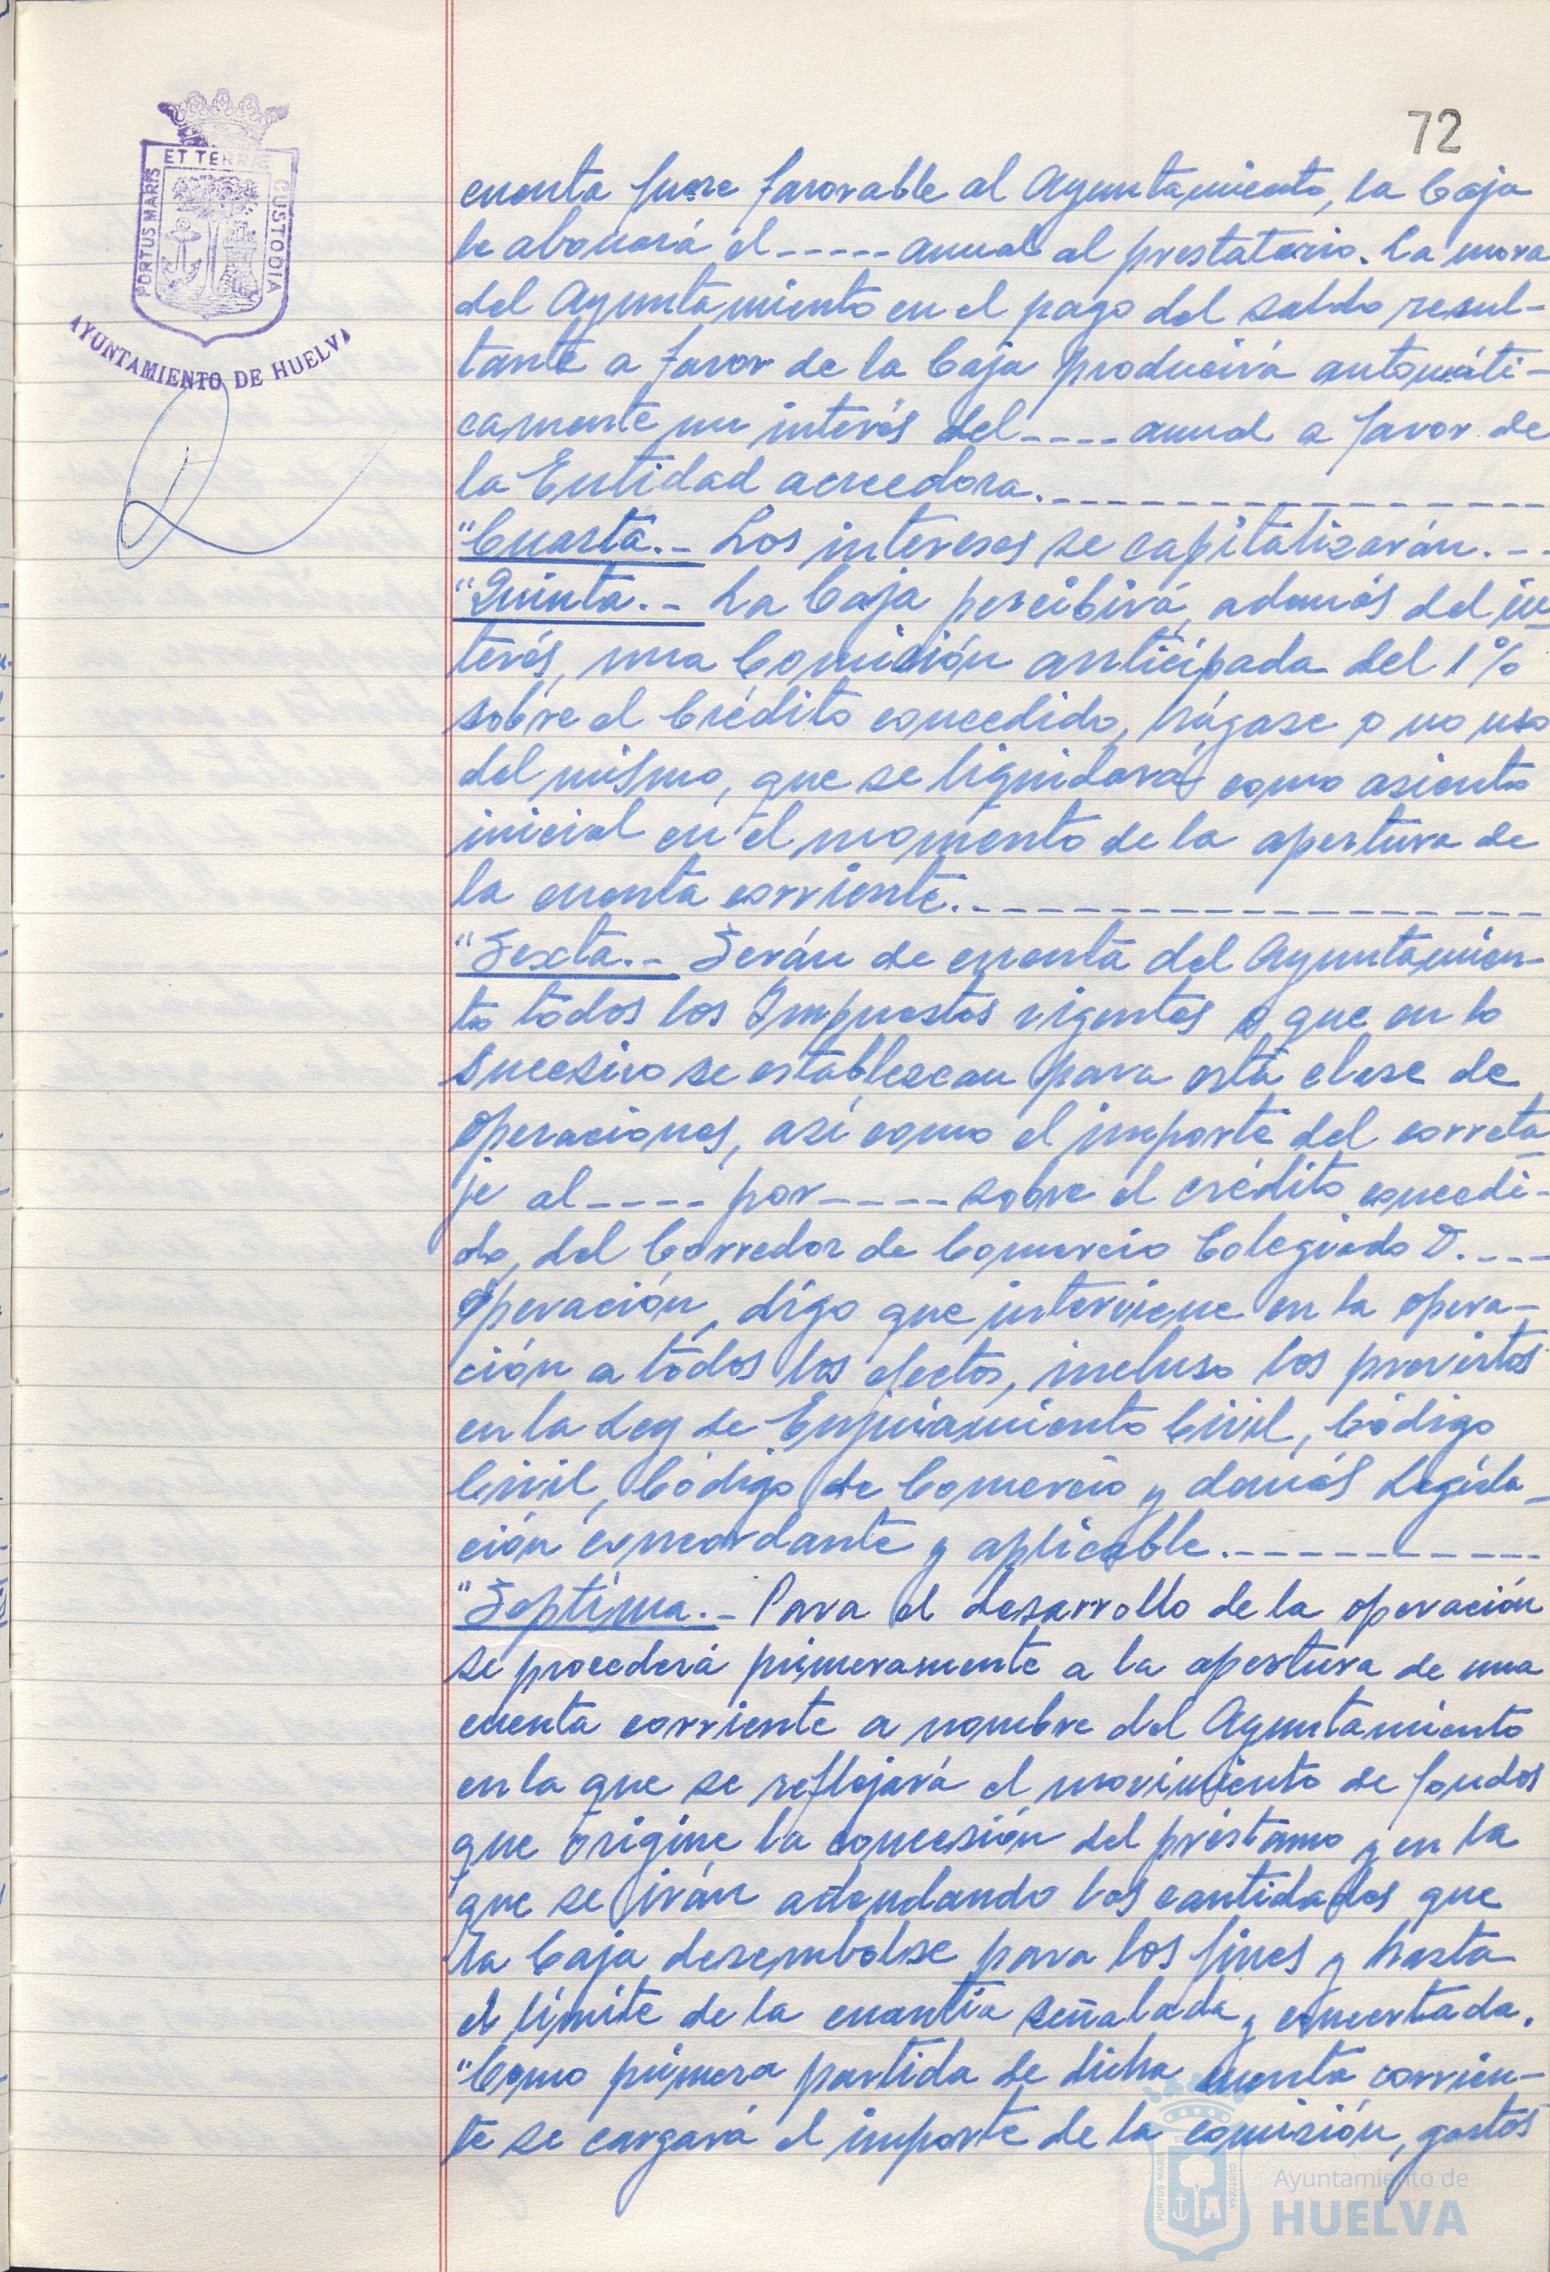 72
ET TERRÆ
PORTUS MARIS
CUSTODIA
AYUNTAMIENTO DE HUELVA
cuenta fuere favorable al Ayuntamiento, la Caja
le abonará el ----- anual al prestatario. La mora
del Ayuntamiento en el pago del saldo resul-
tante a favor de la Caja producirá automáti-
camente un interés del ---- anual a favor de
la Entidad acreedora. ----------------
"Cuarta.- Los intereses se capitalizarán. --
"Quinta.- La Caja percibirá, además del in
terés, una Comisión anticipada del 1%
sobre el Crédito concedido, hágase o no uso
del mismo, que se liquidará como asiento
inicial en el momento de la apertura de
la cuenta corriente. ------------------
"Sexta.- Serán de cuenta del Ayuntamien-
to todos los Impuestos vigentes o que en lo
sucesivo se establezcan para esta clase de
operaciones, así como el importe del correta
je al ---- por ---- sobre el crédito concedi-
do, del Corredor de Comercio Colegiado D. ----
operación, digo que interviene en la opera-
ción a todos los efectos, incluso los previstos
en la Ley de Enjuiciamiento Civil, Código
Civil, Código de Comercio y demás Legisla-
ción concordante y aplicable. -----------
"Septima.- Para el desarrollo de la operación
se procederá primeramente a la apertura de una
cuenta corriente a nombre del Ayuntamiento
en la que se reflejará el movimiento de fondos
que origine la concesión del préstamo y en la
que se irán adeudando las cantidades que
la Caja desembolse para los fines y hasta
el límite de la cuantía señalada y concertada.
"Como primera partida de dicha cuenta corrien-
te se cargará el importe de la comisión, gastos
Ayuntamiento de
HUELVA